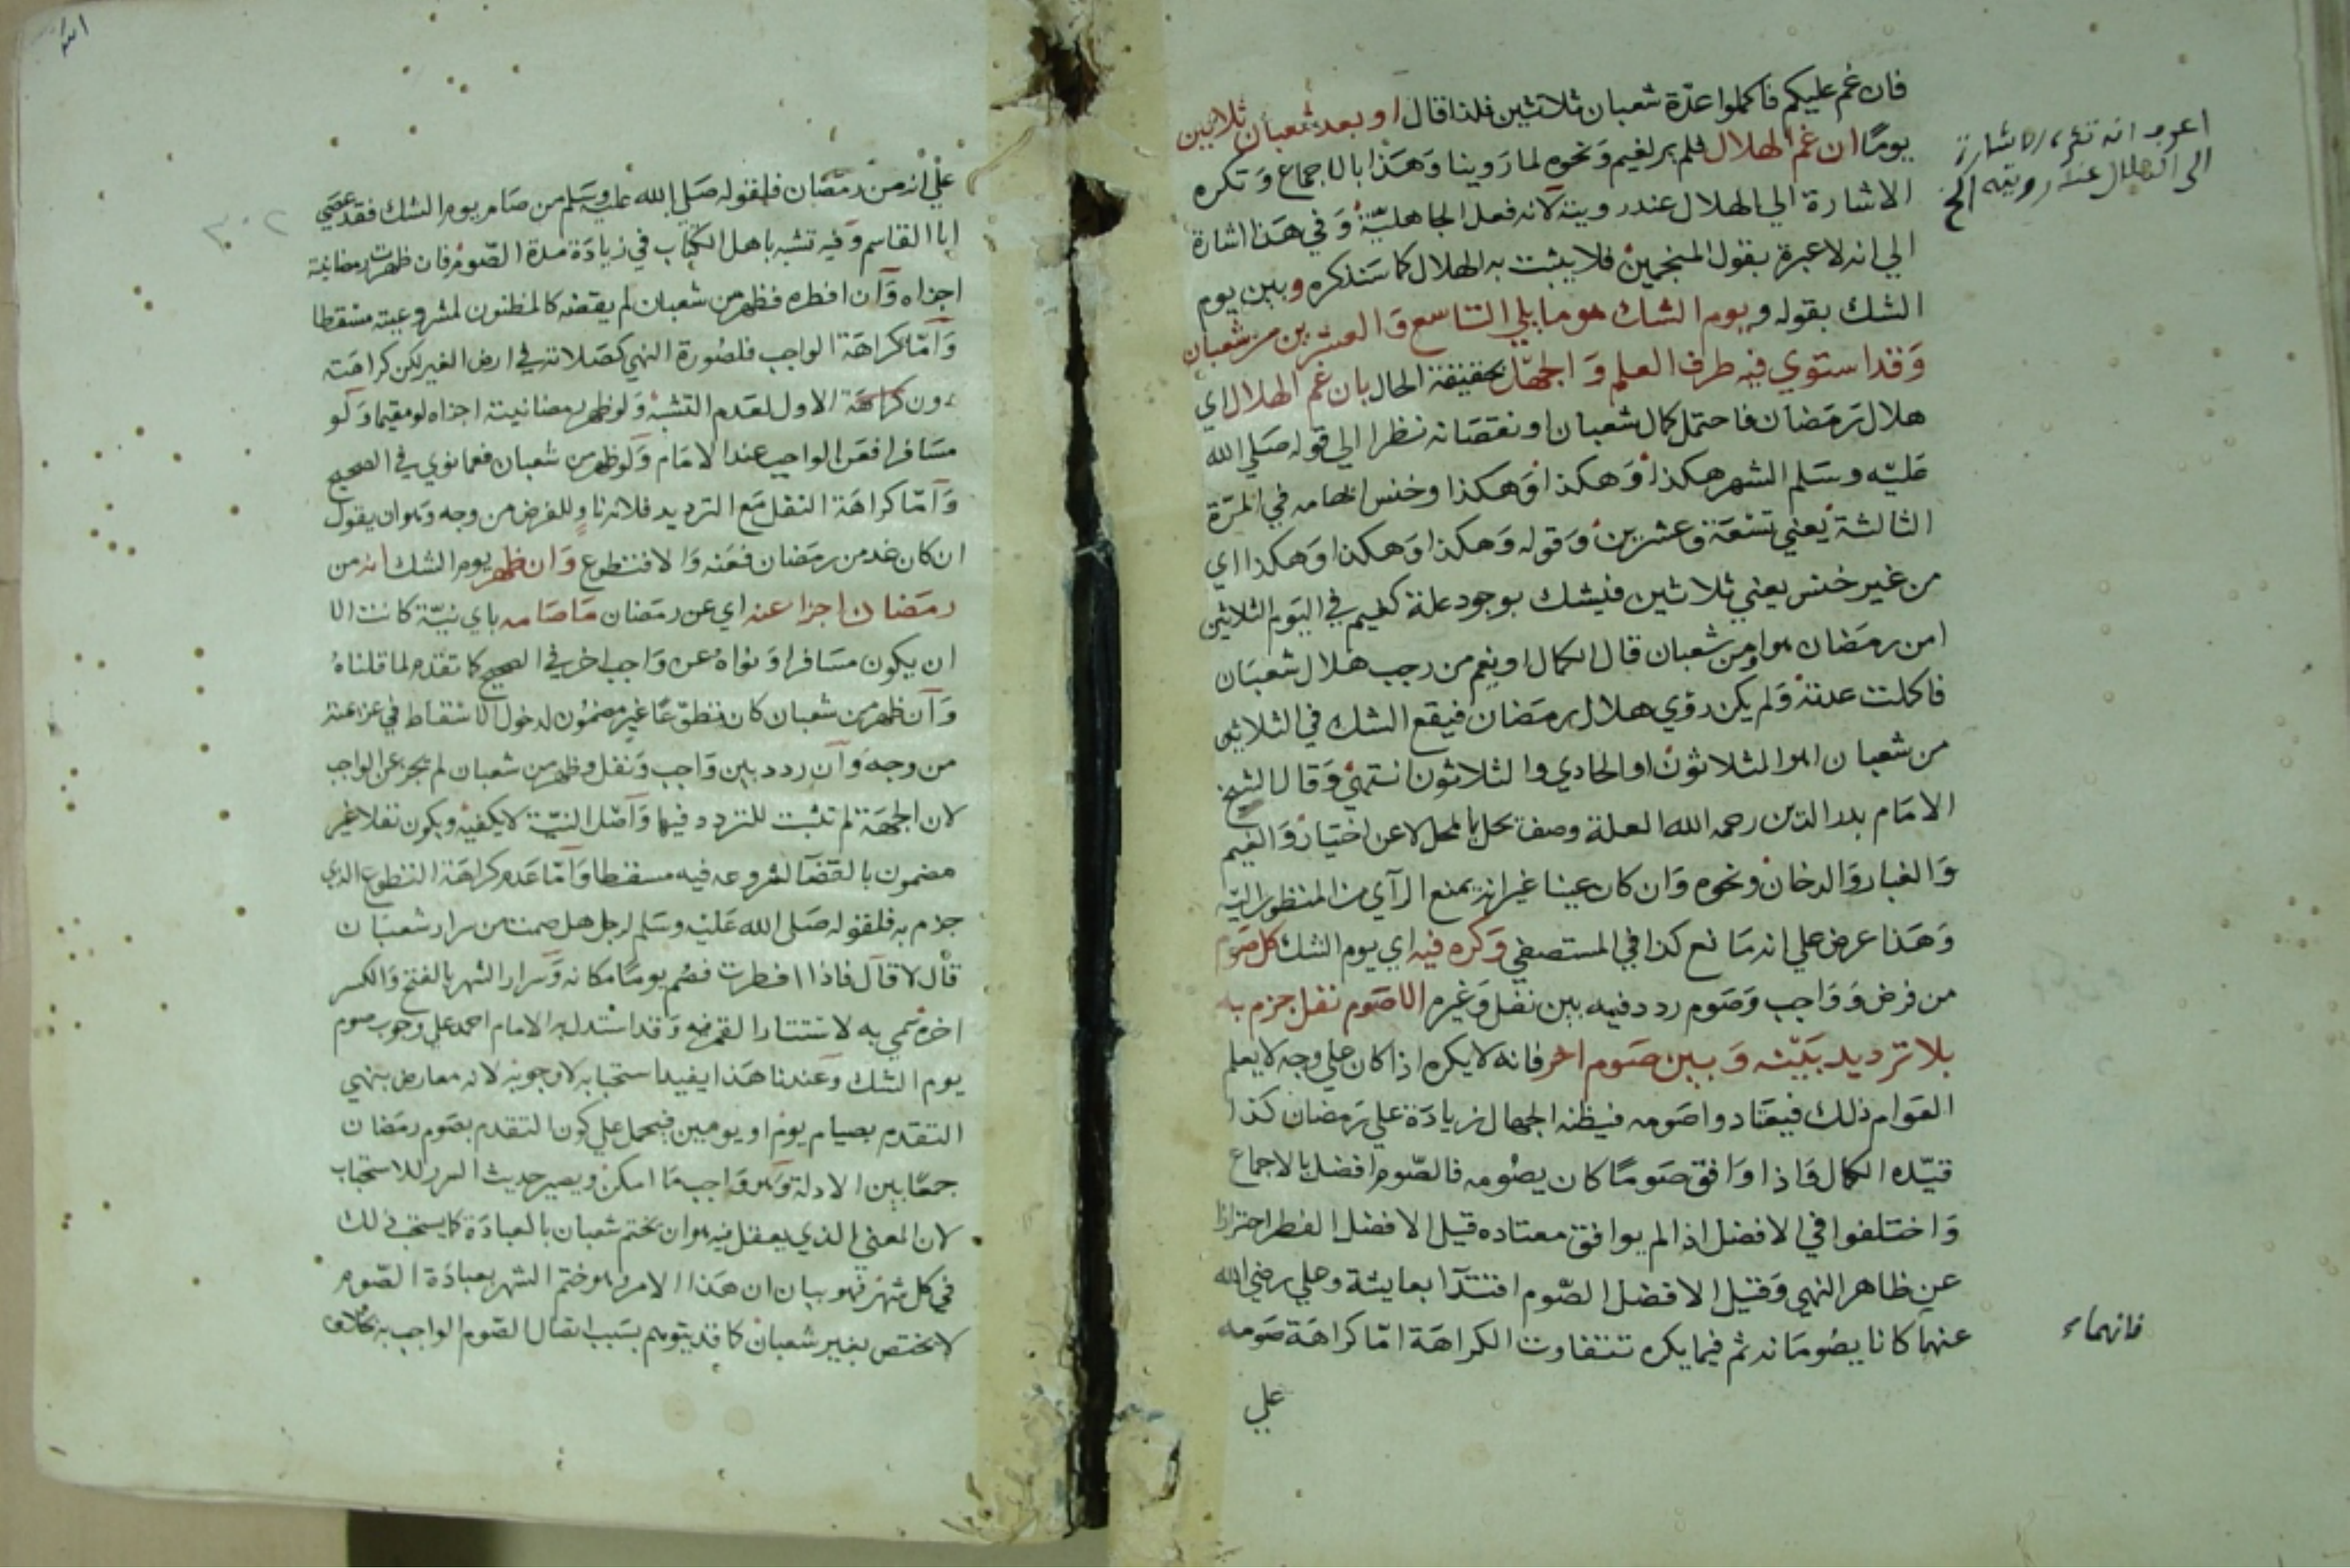 فان غم عليكم فاكملوا عدّة شعبان ثلاثين فلذا قال او بعد شعبان ثلاثين
يومًا ان غم الهلال فلم ير لغيم ونحوه لما روينا وهذا بالاجماع وتكره
الاشارة الي الهلال عند رويته لانه فعل الجاهليّة وفي هذا اشارة
الي انه لا عبرة بقول المنجمين فلا يثبت به الهلال كما سنذكره وبين يوم
الشك بقوله ويوم الشك هو ما يلي التاسع والعشرين من شعبان
وقد استوي فيه طرف العلم والجهل بحقيقة الحال بان غم الهلال اي
هلال رمضان فاحتمل كمال شعبان او نقصانه نظرا الي قوله صلي الله
عليه وسلم الشهر هكذا وهكذا وهكذا وخنس ابهامه في المرّة
الثالثة يعني تسعة وعشرين وقوله وهكذا وهكذا وهكذا اي
من غير خنس يعني ثلاثين فيشك بوجود علة كغيم في اليوم الثلاثين
امن رمضان هو او من شعبان قال الكمال او يغم من رجب هلال شعبان
فاكملت عدته ولم يكن رؤي هلال رمضان فيقع الشك في الثلاثين
من شعبان اهو الثلاثون او الحادي والثلاثون انتهي وقال الشيخ
الامام بدر الدين رحمه الله العلة وصف يحل بالمحل لا عن اختيار والغيم
والغبار والدخان ونحوه وان كان عينا غير انه يمنع الرآي من المنظور اليه
وهذا عرض علي انه مانع كذا في المستصفي وكره فيه اي يوم الشك كل صوم
من فرض وواجب وصوم ردد فيه بين نفل وغيره الا صوم نفل جزم به
بلا ترديد بيّنه وبين صوم اخر فانه لا يكره اذا كان علي وجه لا يعلم
العوام ذلك فيعتادوا صومه فيظنه الجهال زيادة علي رمضان كذا
قيّده الكمال واذا وافق صومًا كان يصومه فالصّوم افضل بالاجماع
واختلفوا في الافضل اذا لم يوافق معتاده قيل الافضل الفطر احترازا
عن ظاهر النهي وقيل الافضل الصّوم اقتدآ بعايشة وعلي رضي الله
عنهما كانا يصومانه ثم فيما يكره تتفاوت الكراهة امّا كراهة صومه
علي
الاشارة
الي الهلال عند رويته الخ
فانهما
علي انه من رمضان فلقوله صلي الله عليه وسلم من صام يوم الشك فقد عصي
ابا القاسم وفيه تشبه باهل الكتاب في زيادة مدة الصّوم فان ظهرت رمضانيته
اجزاه وان افطره فظهر من شعبان لم يقضه كالمظنون لمشروعيته مسقطا
وامّا كراهة الواجب فلصورة النهي كصلاته في ارض الغير لكن كراهته
دون كراهة الاول لعدم التشبه ولو ظهر رمضانيته اجزاه لو مقيما ولو
مسافرا فعن الواجب عند الامام ولو ظهر من شعبان فعما نوي في الصحيح
وامّا كراهة النفل مع الترديد فلانه ناو للفرض من وجه وهو ان يقول
ان كان غد من رمضان فعنه والا فتطوع وان ظهر يوم الشك انه من
رمضان اجزا عنه اي عن رمضان ما صامه باي نيّة كانت الا
ان يكون مسافرا ونواه عن واجب اخر في الصحيح كما تقدم لما قلناه
وان ظهر من شعبان كان تطوّعًا غير مضمون لدخول الاسقاط في عزيمته
من وجه وان ردد بين واجب ونفل وظهر من شعبان لم يجز عن الواجب
لان الجهة لم تثبت للتردد فيها واصل النيّة لا يكفيه ويكون نفلا غير
مضمون بالقضآ لشروعه فيه مسقطا وامّا عدم كراهة التطوع الذي
جزم به فلقوله صلي الله عليه وسلم لرجل هل صمت من سرار شعبان
قال لا قال فاذا افطرت فصم يومًا مكانه وسرار الشهر بالفتح والكسر
اخره سمي به لاستتار القمر فيه وقد استدل به الامام احمد علي وجوب صوم
يوم الشك وعندنا هذا يفيد استحبابه لا وجوبه لانه معارض بنهي
التقدم بصيام يوم او يومين فيحمل علي كون التقدم بصوم رمضان
جمعًا بين الادلة وهو واجب ما امكن ويصير حديث السرر للاستحباب
لان المعني الذي يعقل فيه هو ان يختم شعبان بالعبادة كما يستحب ذلك
في كل شهر فهو بيان ان هذا الامر هو ختم الشهر بعبادة الصّوم
لا يختص بغير شعبان كما قد يتوهم بسبب اتصال الصّوم الواجب به بخلاف